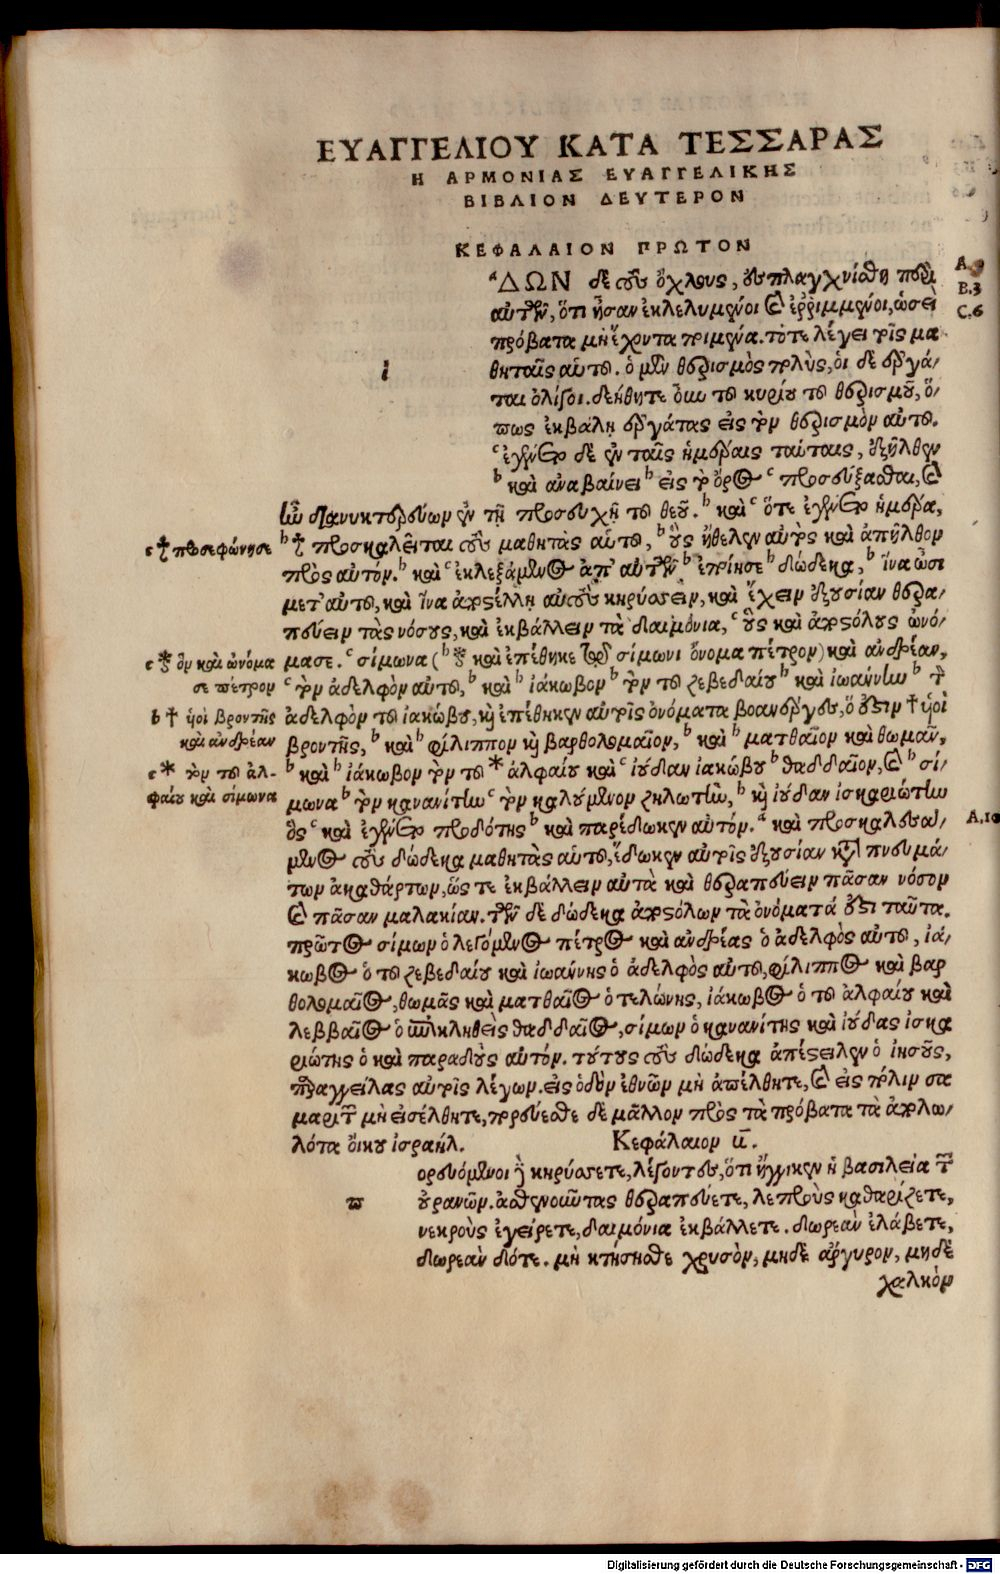 ΕΥΑΓΓΕΛΙΟΥ ΚΑΤΑ ΤΕΣΣΑΡΑΣ
Η ΑΡΜΟΝΙΑΣ ΕΥΑΓΓΕΛΙΚΗΣ
ΒΙΒΛΙΟΝ ΔΕΥΤΕΡΟΝ
ΚΕΦΑΛΑΙΟΝ ΠΡΩΤΟΝ
A.9
B.3
C.6
ι
ᵃ ΔΩΝ δὲ τοὺς ὄχλους, ἐσπλαγχνίσθη περὶ
αὐτῶν, ὅτι ἦσαν ἐκλελυμένοι καὶ ἐῤῥιμμένοι, ὡσεὶ
πρόβατα μὴ ἔχοντα ποιμένα. τότε λέγει τοῖς μα
θηταῖς αὑτοῦ. ὁ μὲν θερισμὸς πολὺς, ὁι δὲ ἐργά/
ται ὀλίγοι. δεήθητε οὖν τοῦ κυρίου τοῦ θερισμοῦ, ὅ/
πως ἐκβάλῃ ἐργάτας εἰς τὸν θερισμὸν αὐτοῦ.
ᶜ ἐγένετο δὲ ἐν ταῖς ἡμέραις ταύταις, ἐξῆλθεν
ᵇ καὶ ἀναβαίνει ᵇ εἰς τὸ ὄρος ᶜ προσεύξασθαι, καὶ
ἦν διανυκτερεύων ἐν τῇ προσευχῇ τοῦ θεοῦ. ᵇ καὶ ᶜ ὅτε ἐγένετο ἡμέρα,
c † προσεφώνησε
ᵇ † προσκαλεῖται τοὺς μαθητὰς αὑτοῦ, ᵇ οὓς ἤθελεν αὐτὸς καὶ ἀπῆλθον
πρὸς αὐτόν. ᵇ καὶ ᶜ ἐκλεξάμενος ἀπ' αὐτῶν ᵇ ἐποίησε ᵇ δώδεκα, ᵇ ἵνα ὦσι
μετ' αὐτοῦ, καὶ ἵνα ἀποστέλλῃ αὐτοὺς κηρύσσειν, καὶ ἔχειν ἐξουσίαν θερα/
πεύειν τὰς νόσους, καὶ ἐκβάλλειν τὰ δαιμόνια, ᶜ οὓς καὶ ἀποστόλους ὠνό/
c * ὃν καὶ ὠνόμα
σε πέτρον
μασε. ᶜ σίμωνα (ᵇ * καὶ ἐπέθηκε τῷ σίμωνι ὄνομα πέτρον) καὶ ἀνδρέαν,
ᶜ τὸν ἀδελφὸν αὐτοῦ, ᵇ καὶ ᵇ ἰάκωβον ᵇ τὸν τοῦ ζεβεδαίου ᵇ καὶ ἰωάννην ᵇ τὸν
b † ὑιοὶ βροντῆς
καὶ ἀνδρέαν
ἀδελφὸν τοῦ ἰακώβου, καὶ ἐπέθηκεν αὐτοῖς ὀνόματα βοανεργες, ὅ ἐστιν † ὑιοὶ
βροντῆς, ᵇ καὶ ᵇ φίλιππον καὶ βαρθολομαῖον, ᵇ καὶ ᵇ ματθαῖον καὶ θωμᾶν,
c * τὸν τοῦ ἀλ-
φαίου καὶ σίμωνα
ᵇ καὶ ᵇ ἰάκωβον τὸν τοῦ * ἀλφαίου καὶ ᶜ ἰούδαν ἰακώβου ᵇ θαδδαῖον, καὶ ᵇ σί/
μωνα ᵇ τὸν κανανίτην ᶜ τὸν καλούμενον ζηλωτὴν, ᵇ καὶ ἰούδαν ἰσκαριώτην
A.10
ὃς ᶜ καὶ ἐγένετο προδότης ᵇ καὶ παρέδωκεν αὐτόν. ᵃ καὶ προσκαλεσά/
μενος τοὺς δώδεκα μαθητὰς αὑτοῦ, ἔδωκεν αὐτοῖς ἐξουσίαν κατὰ πνευμά/
των ἀκαθάρτων, ὥς τε ἐκβάλλειν αὐτὰ καὶ θεραπεύειν πᾶσαν νόσον
καὶ πᾶσαν μαλακίαν. τῶν δὲ δώδεκα ἀποστόλων τὰ ὀνόματά ἐστι ταῦτα.
πρῶτος σίμων ὁ λεγόμενος πέτρος καὶ ἀνδρέας ὁ ἀδελφὸς αὐτοῦ, ἰά/
κωβος ὁ τοῦ ζεβεδαίου καὶ ἰωάννης ὁ ἀδελφὸς αὐτοῦ, φίλιππος καὶ βαρ
θολομαῖος, θωμᾶς καὶ ματθαῖος ὁ τελώνης, ἰάκωβος ὁ τοῦ ἀλφαίου καὶ
λεββαῖος ὁ ἐπικληθεὶς θαδδαῖος, σίμων ὁ κανανίτης καὶ ἰούδας ἰσκα
ριώτης ὁ καὶ παραδοὺς αὐτόν. τούτους τοὺς δώδεκα ἀπέστειλεν ὁ ἰησοῦς,
παραγγείλας αὐτοῖς λέγων. εἰς ὁδὸν ἐθνῶν μὴ ἀπέλθητε, καὶ εἰς πόλιν σα
μαριτῶν μὴ εἰσέλθητε, πορεύεσθε δὲ μᾶλλον πρὸς τὰ πρόβατα τὰ ἀπολω/
λότα ὄικου ἰσραήλ. Κεφάλαιον β̄.
π
ορευόμενοι δὲ κηρύσσετε, λέγοντες, ὅτι ἤγγικεν ἡ βασιλεία τῶν
οὐρανῶν. ἀσθενοῦντας θεραπεύετε, λεπροὺς καθαρίζετε,
νεκροὺς ἐγείρετε, δαιμόνια ἐκβάλλετε. δωρεὰν ἐλάβετε,
δωρεὰν δότε. μὴ κτήσησθε χρυσὸν, μηδὲ ἄργυρον, μηδὲ
χαλκὸν
Digitalisierung gefördert durch die Deutsche Forschungsgemeinschaft - DFG